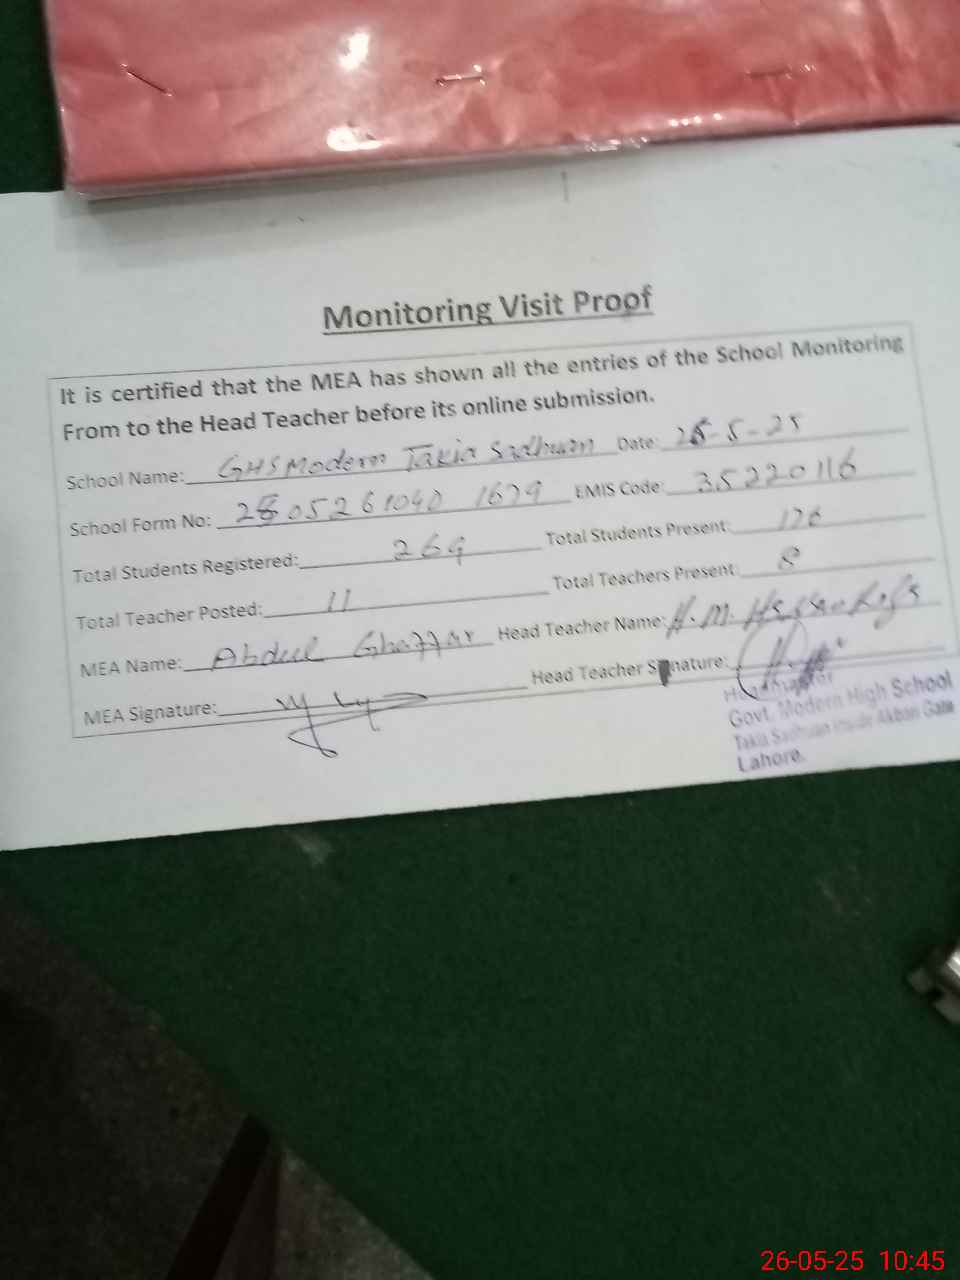 Monitoring Visit Proof
It is certified that the MEA has shown all the entries of the School Monitoring
From to the Head Teacher before its online submission.
School Name: GHS Modern Takia Sadhuan Date: 26-5-25
School Form No: 2805261040 1679 EMIS Code: 35220116
Total Students Registered: 269 Total Students Present: 176
Total Teacher Posted: 11 Total Teachers Present: 8
MEA Name: Abdul Ghaffar Head Teacher Name: H.M.
MEA Signature: Head Teacher Signature:
Headmaster
Govt. Modern High School
Takia Sadhuan Inside Akbari Gate
Lahore.
26-05-25 10:45